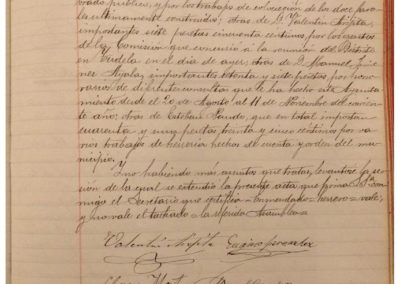 brado publico, y por los trabajos de colocación de la doce faro-
las ultimamente construidos; otras de D. Valentin
importantes siete pesetas cincuenta centimos, por gastos
de la Comision que concurrió a la reunion del Distrito
en Tudela en el dia de ayer; otras de D. Manuel Jime-
nez Ayala, importantes ochenta y siete pesetas por hono-
rarios de diferentes consultas que le ha hecho este Ayunta-
miento desde el 20 de Agosto al 11 de Noviembre del corrien-
te año; otras de Esteban que en total importan
cuarenta y una pesetas treinta y cinco centimos por va-
rios trabajos de herreria hechos de cuenta y orden del mu-
nicipio.
Y no habiendo más asuntos que tratar, levantóse la se-
sión de la cual se extendió la presente acta que firma
conmigo el Secretario que certifico = Enmendado = herrero = vale;
y no vale el tachado = la referida Asamblea
Valentin